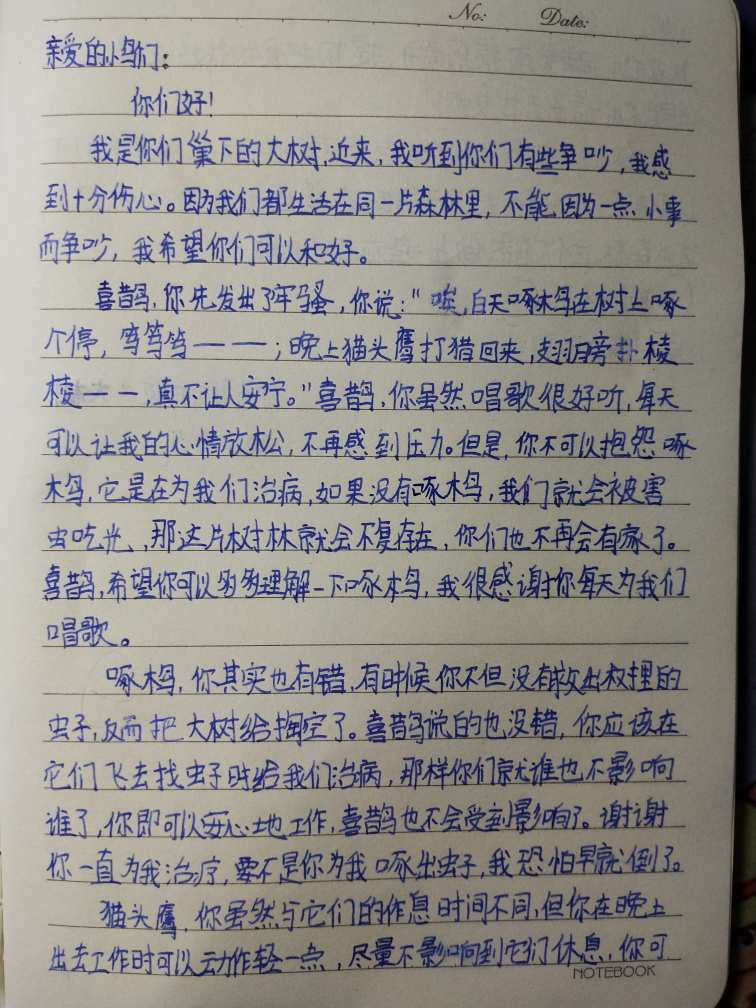 No: Date:
亲爱的小鸟们：
你们好！
我是你们巢下的大树，近来，我听到你们有些争吵，我感
到十分伤心。因为我们都生活在同一片森林里，不能因为一点小事
而争吵，我希望你们可以和好。
喜鹊，你先发出了牢骚，你说：“唉，白天啄木鸟在树上啄
个停，笃笃笃——；晚上猫头鹰打猎回来，翅膀扑棱
棱——，真不让人安宁。”喜鹊，你虽然唱歌很好听，每天
可以让我的心情放松，不再感到压力。但是，你不可以抱怨啄
木鸟，它是在为我们治病，如果没有啄木鸟，我们就会被害
虫吃光，那这片树林就会不复存在，你们也不再会有家了。
喜鹊，希望你可以多多理解一下啄木鸟，我很感谢你每天为我们
唱歌。
啄木鸟，你其实也有错，有时候你不但没有救出权里的
虫子，反而把大树给掏空了。喜鹊说的也没错，你应该在
它们飞去找虫子时给我们治病，那样你们就谁也不影响
谁了，你即可以安心地工作，喜鹊也不会受到影响了。谢谢
你一直为我治疗，要不是你为我啄出虫子，我恐怕早就倒了。
猫头鹰，你虽然与它们的作息时间不同，但你在晚上
出去工作时可以动作轻一点，尽量不影响到它们休息，你可
NOTEBOOK